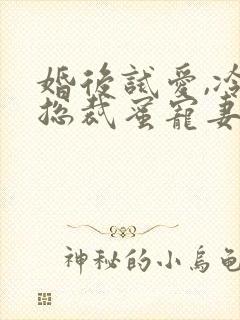 婚後試愛,冷
總裁蜜寵妻
神秘的小烏龜